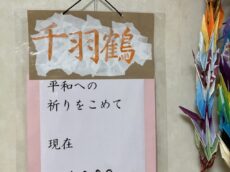 千羽鶴
平和への
祈りをこめて
現在